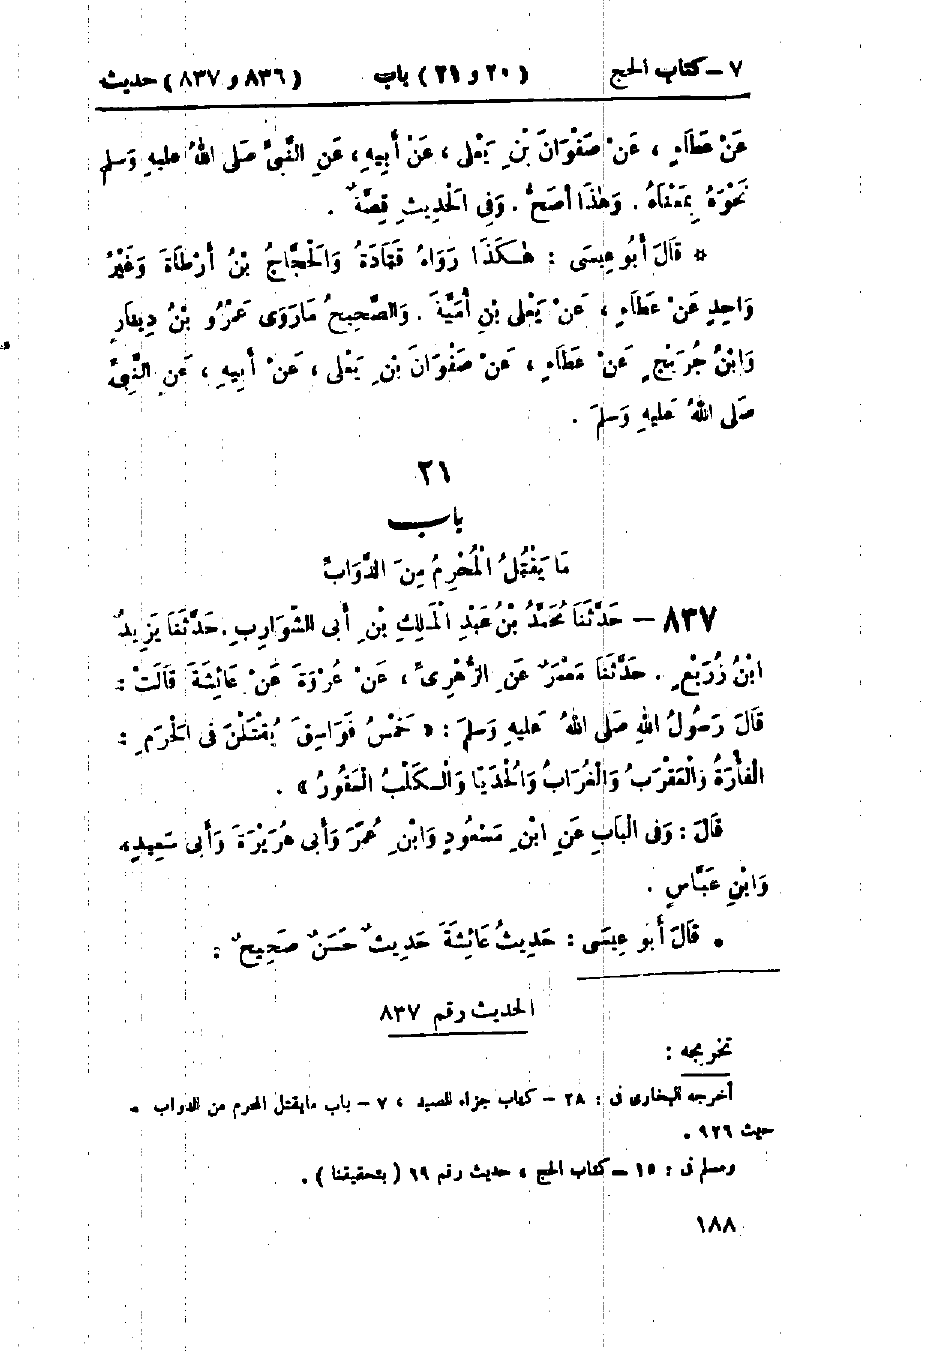 ٧ – كتاب الحج (٢٠ و ٢١) باب (٨٣٦ و ٨٣٧) حديث
عَنْ عَطَاءٍ ، عَنْ صَفْوَانَ بْنِ يَعْلَى ، عَنْ أَبِيهِ ، عَنِ النَّبِيِّ صَلَّى اللهُ عليهِ وَسلم
نَحْوَهُ بِمَعْنَاهُ . وَهٰذَا أَصَحُّ . وَفِي الْحَدِيثِ قِصَّةٌ .
* قَالَ أَبُو عِيسَى : هٰكَذَا رَوَاهُ قَتَادَةُ وَالْحَجَّاجُ بْنُ أَرْطَاةَ وَغَيْرُ
وَاحِدٍ عَنْ عَطَاءٍ ، عَنْ يَعْلَى بْنِ أُمَيَّةَ . وَالصَّحِيحُ مَا رَوَى عَمْرُو بْنُ دِينَارٍ
وَابْنُ جُرَيْجٍ عَنْ عَطَاءٍ ، عَنْ صَفْوَانَ بْنِ يَعْلَى ، عَنْ أَبِيهِ ، عَنِ النَّبِيِّ
صَلَّى اللهُ عَليهِ وَسلمَ .
٢١
باب
مَا يَقْتُلُ الْمُحْرِمُ مِنَ الدَّوَابِّ
٨٣٧ – حَدَّثَنَا مُحَمَّدُ بْنُ عَبْدِ الْمَلِكِ بْنِ أَبِى الشَّوَارِبِ . حَدَّثَنَا يَزِيدُ
ابْنُ زُرَيْعٍ . حَدَّثَنَا مَعْمَرٌ عَنِ الزُّهْرِىِّ ، عَنْ عُرْوَةَ عَنْ عَائِشَةَ قَالَتْ :
قَالَ رَسُولُ اللهِ صَلَّى اللهُ عَليهِ وَسلمَ : « خَمْسُ فَوَاسِقَ يُقْتَلْنَ فى الْحَرَمِ :
الْفَأْرَةُ وَالْعَقْرَبُ وَالْغُرَابُ وَالْحُدَيَّا وَالْكَلْبُ الْعَقُورُ » .
قَالَ : وَفى الْبَابِ عَنِ ابْنِ مَسْعُودٍ وَابْنِ عُمَرَ وَأَبى هُرَيْرَةَ وَأَبى سَعِيدٍ ،
وَابْنِ عَبَّاسٍ .
• قَالَ أَبُو عِيسَى : حَدِيثُ عَائِشَةَ حَدِيثٌ حَسَنٌ صَحِيحٌ :
الحديث رقم ٨٣٧
تخريجه :
أخرجه البخارى فى : ٢٨ – كتاب جزاء الصيد ، ٧ – باب ما يقتل المحرم من الدواب -
حديث ٩٢٦ .
ومسلم فى : ١٥ – كتاب الحج ، حديث رقم ٦٩ ( بتحقيقنا ) .
١٨٨